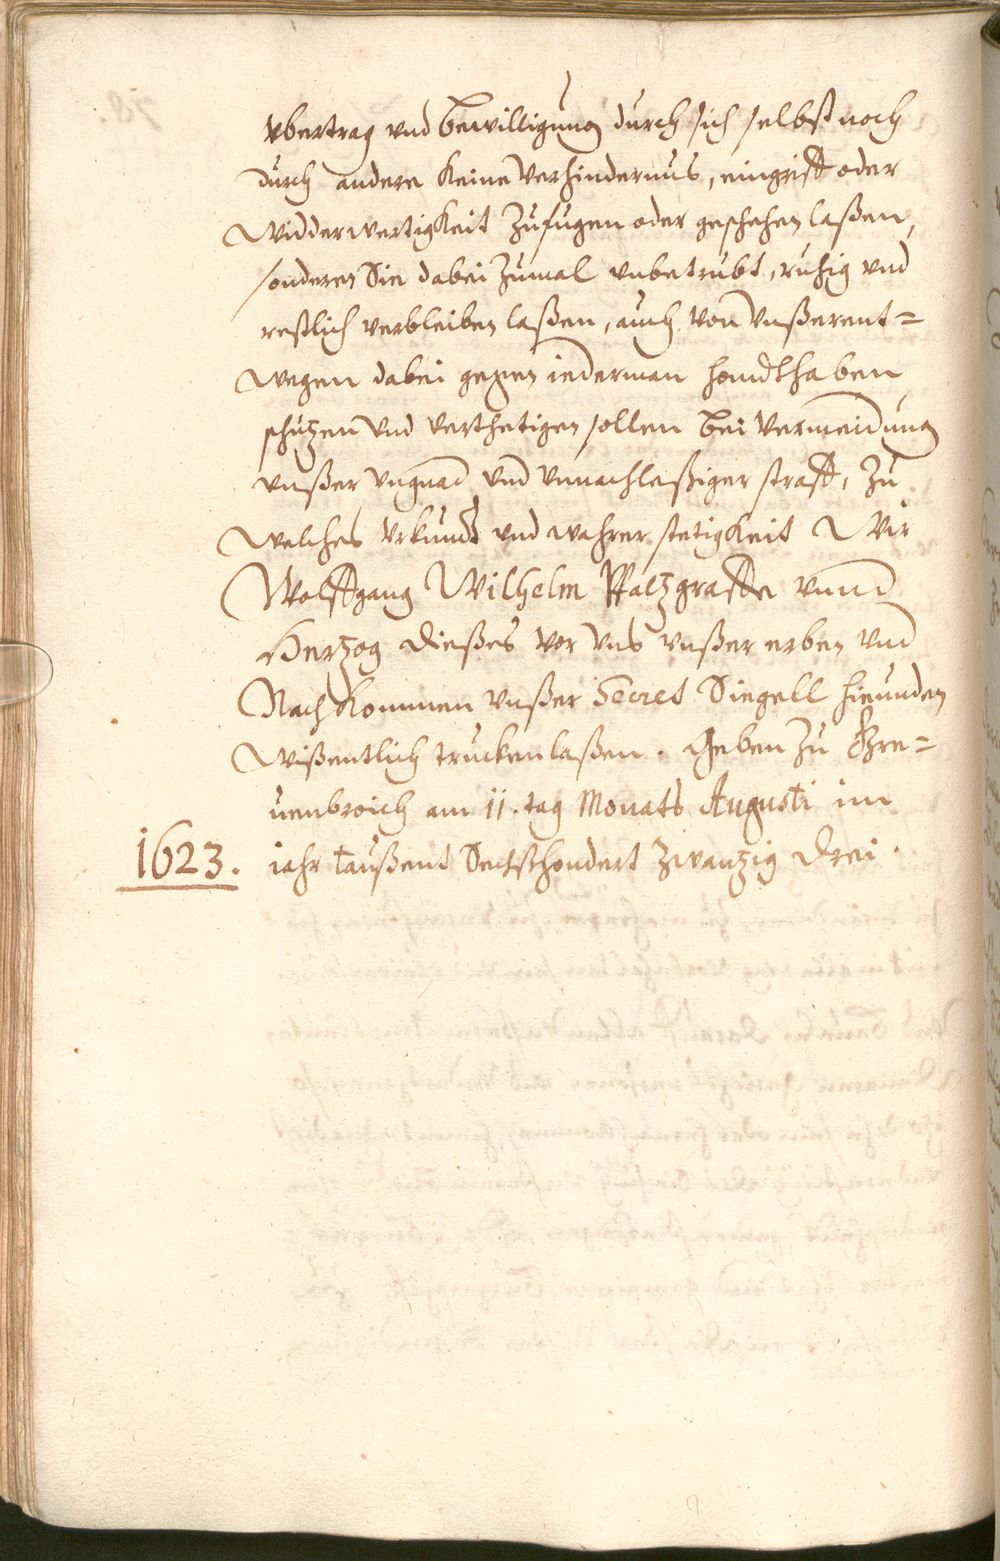 vbertrag vnd bewilligung durch sich selbst noch
durch andere Keine Verhindernus, eingriff oder
Widderwertigkeit Zufugen oder geschehen laßen,
sonderen Sie dabei Zumal vnbetrubt, ruhig vnd
restlich verbleiben laßen, auch von Vnßerent=
wegen dabei gegen iederman handthaben
schutzen vnd verthetigen sollen bei Vermeidung
vnßer vngnad vnd vnnachleßiger straff, Zu
Welches Vrkundt vnd wahrer stetigkeit Wir
Wolffgang Wilhelm Pfaltzgraffe vnnd
Hertzog dießes vor Vns vnßer erben vnd
Nachkommen vnßer Secret Siegell hieunden
Wißentlich trucken laßen. Geben Zu Gre=
uenbroich am 11. tag Monats Augusti im
1623. iahr taußent Sechßhondert Zwantzig Drei.